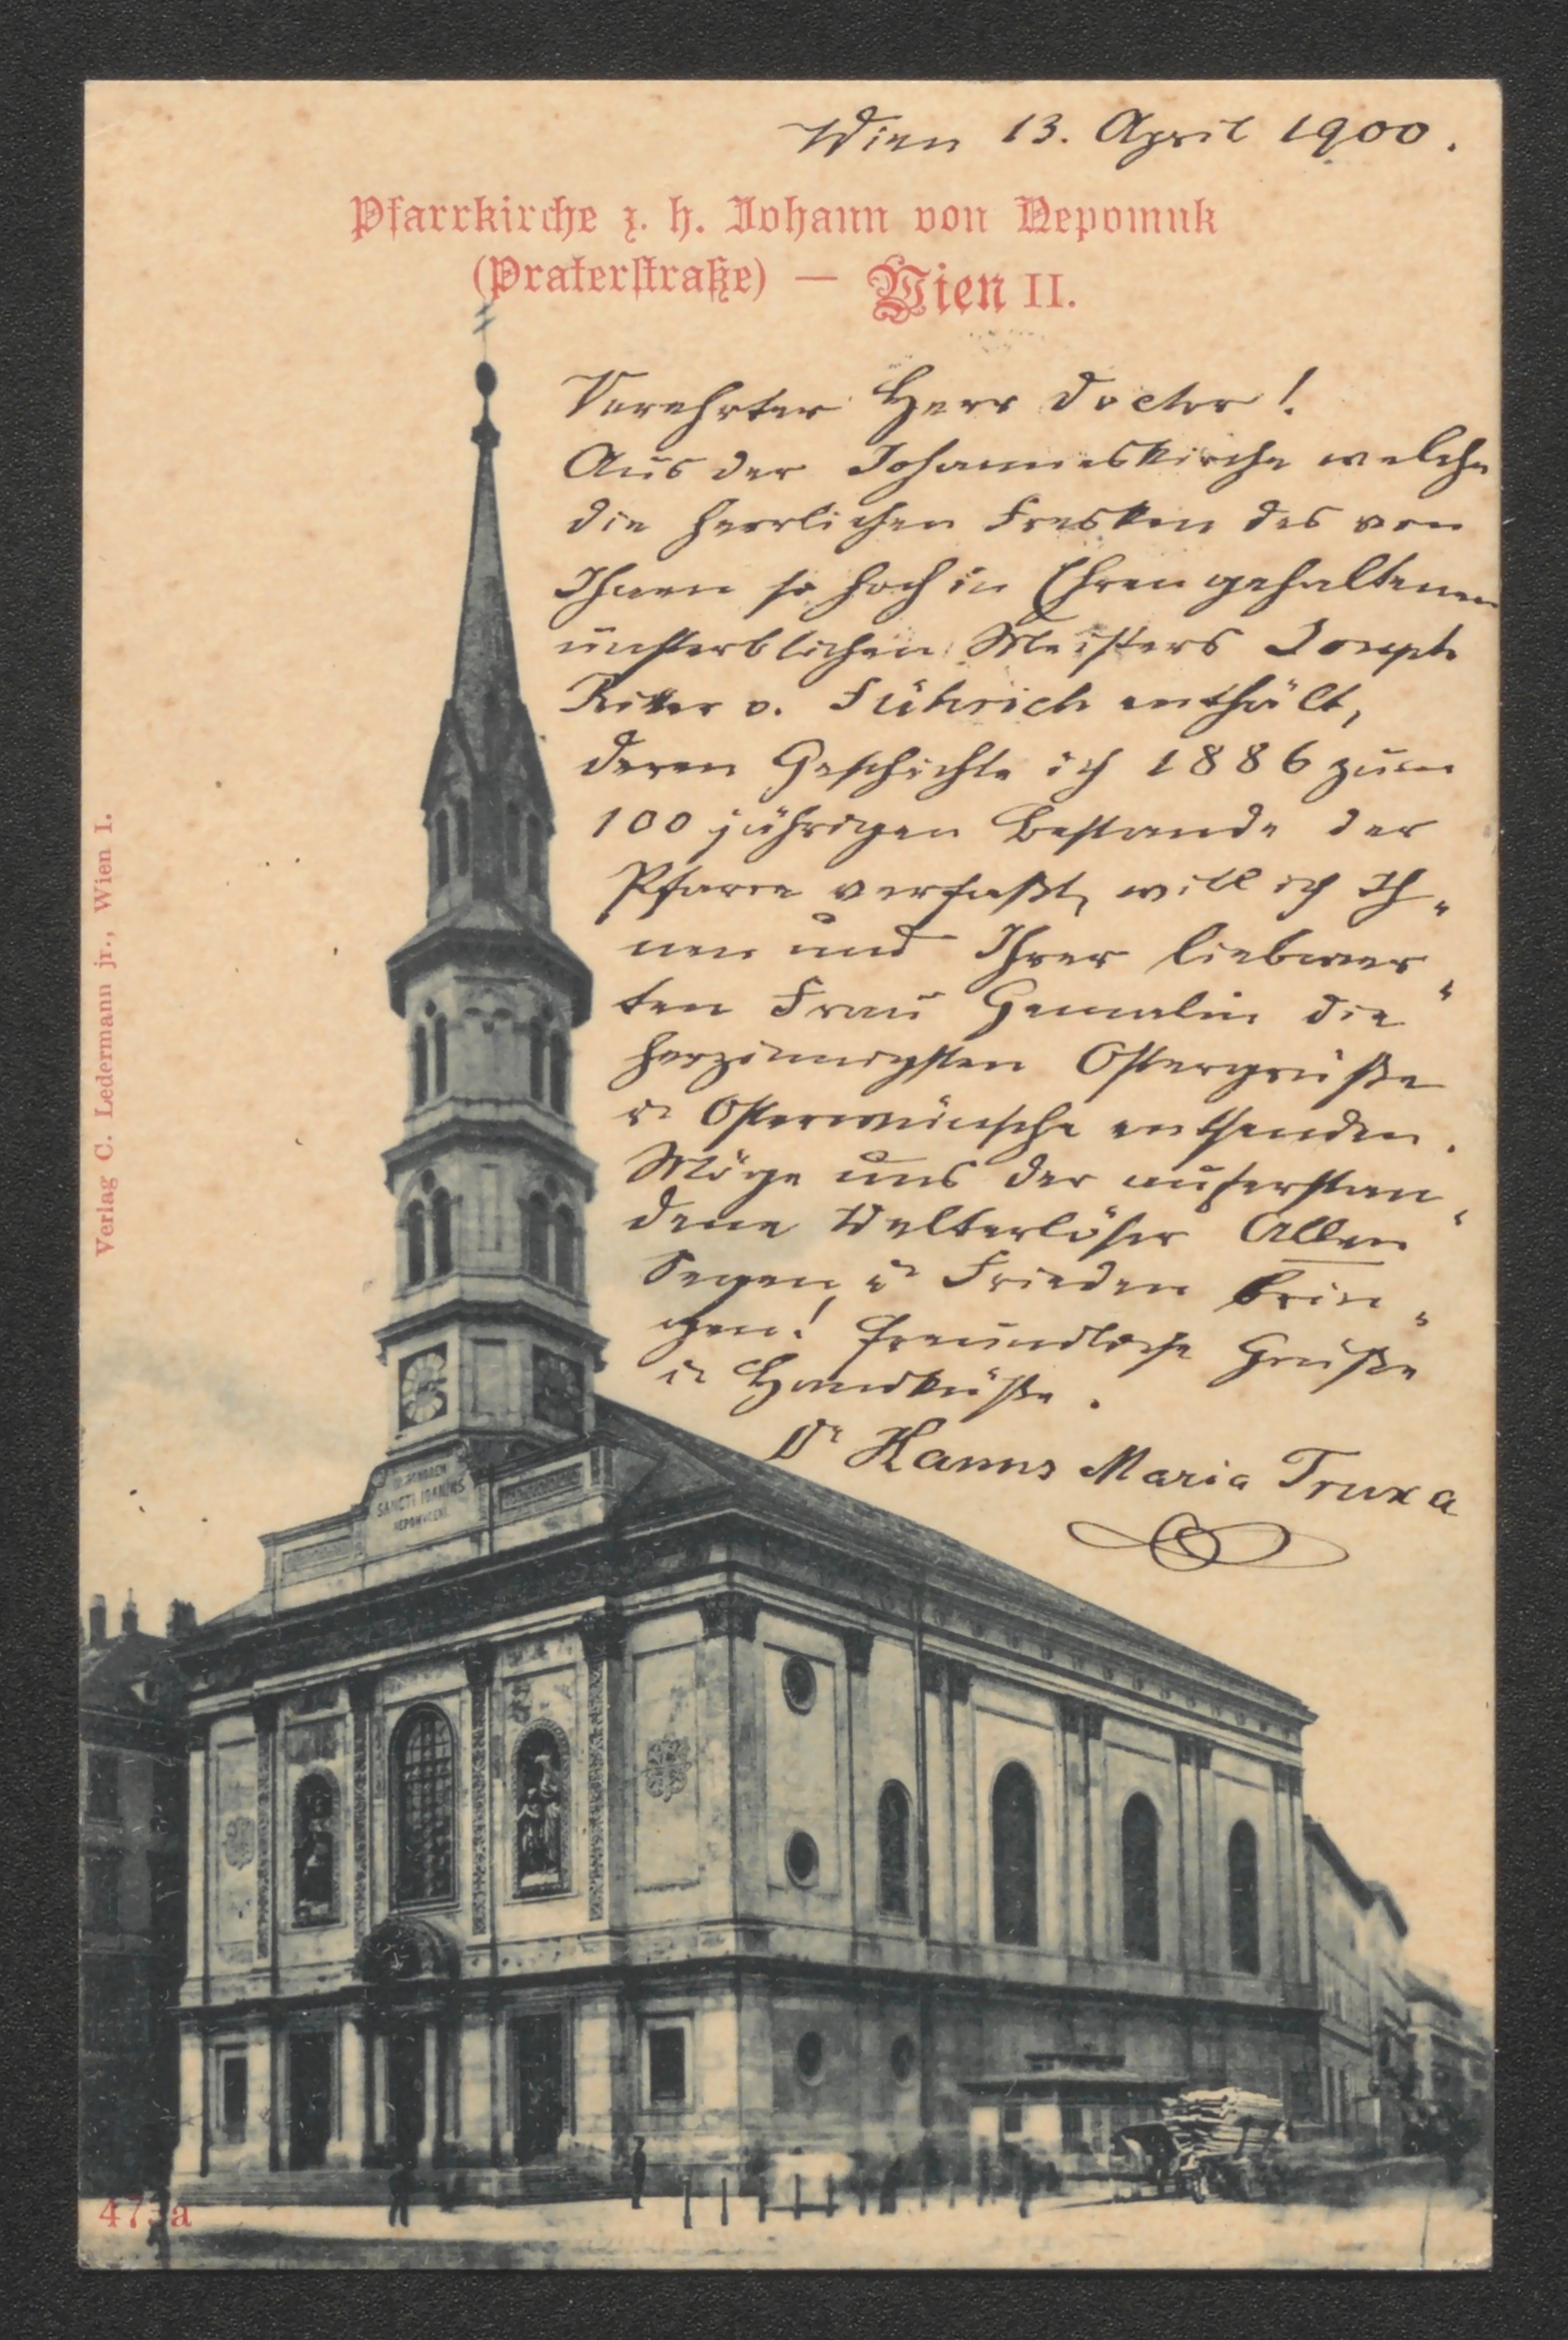 Wien 13. April 1900.
Pfarrkirche z. h. Johann von Nepomuk
(Praterstraße) — Wien II.
Verehrter Herr Doctor!
Aus der Johanneskirche welche
die herrlichen Fresken des von
Ihnen so hoch in Ehren gehaltenen
unsterblichen Meisters Joseph
Ritter v. Führich enthält,
deren Geschichte ich 1886 zum
100 jährigen Bestande der
Pfarre verfaßt, will ich Ih„
nen und Ihrer liebwer„
ten Frau Gemalin die
herzinnigsten Ostergrüße
u Osterwünsche entsenden.
Möge uns der auferstan„
dene Welterlöser Allen
Segen u Frieden brin„
gen! Freundliche Grüße
u Handküße.
Dr Hanns Maria Truxa
Verlag C. Ledermann jr., Wien I.
SANCTI IOANNIS
NEPOMUCENI